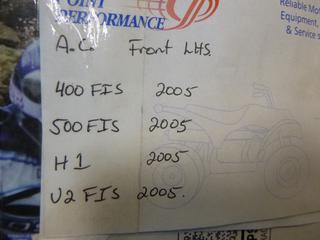 POINT
PERFORMANCE
Reliable Mo
Equipment,
& Service s
A.C. Front LHS
400 FIS 2005
500 FIS 2005
H1 2005
V2 FIS 2005.